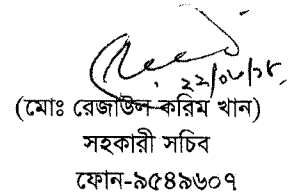 ২২/০৮/১৮
(মোঃ রেজাউল করিম খান)
সহকারী সচিব
ফোন-৯৫৪৯৬০৭